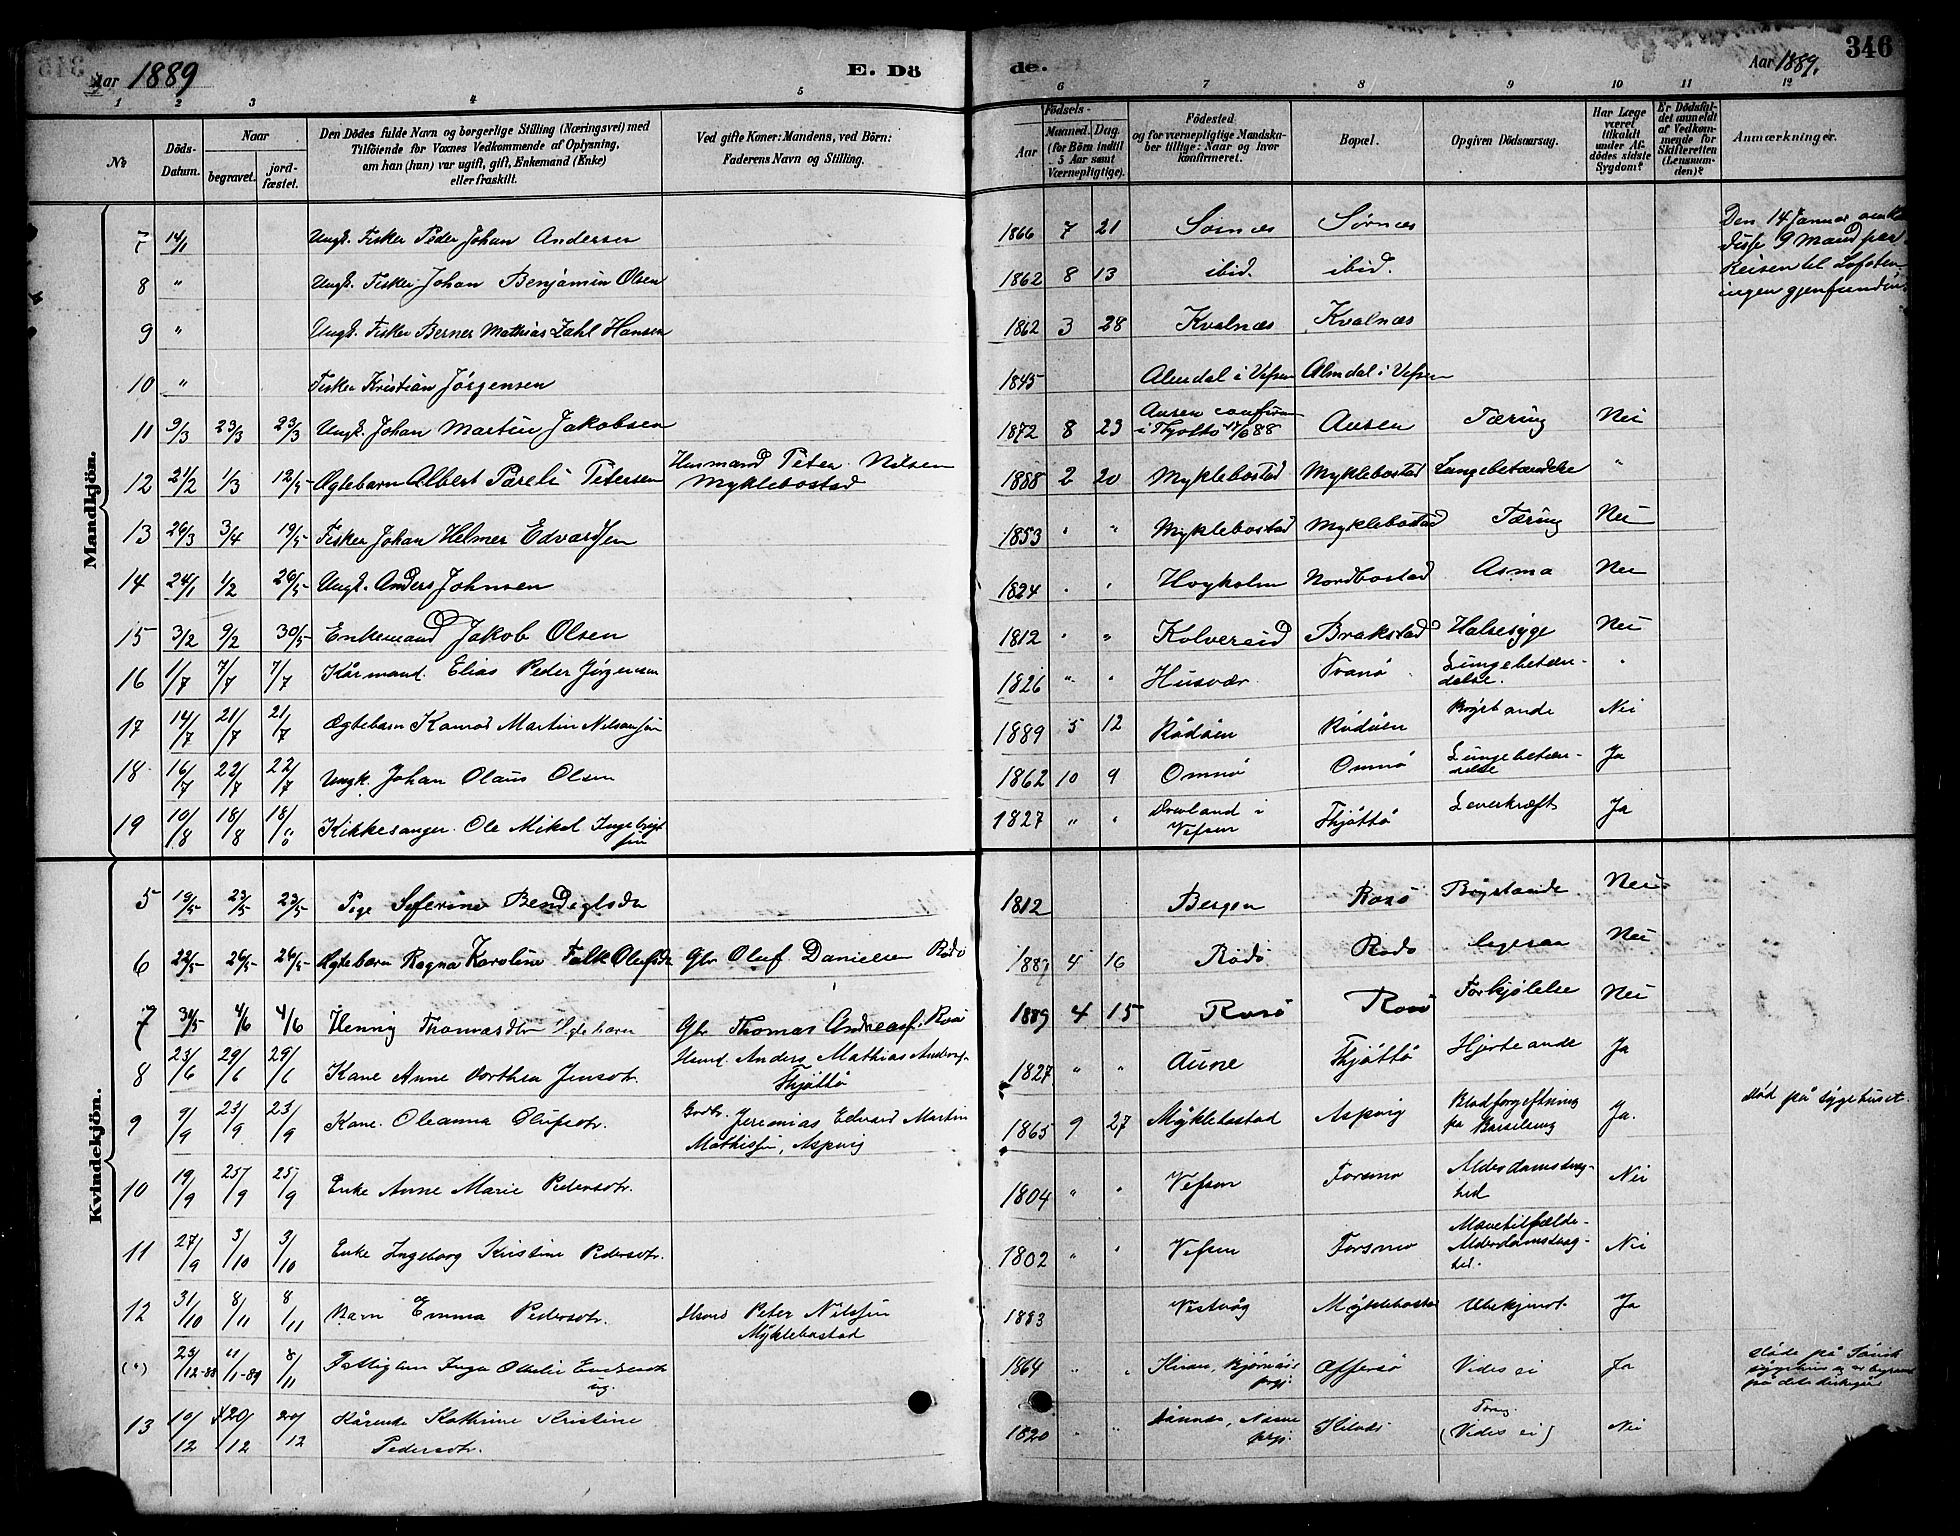 Aar 1889 E. Döde. Aar 1889. 346
1 2 3 4 5 6 7 8 9 10 11 12
No
Döds-Datum.
Naar
begravet.
jord-fæstet.
Den Dödes fulde Navn og borgerlige Stilling (Næringsvei) med
Tilföiende for Voxnes Vedkommende af Oplysning,
om han (hun) var ugift, gift, Enkemand (Enke)
eller fraskilt.
Ved gifte Koner: Mandens, ved Börn:
Faderens Navn og Stilling.
Födsels-
Aar
Maaned. Dag.
(for Börn indtil
5 Aar samt
Værnepligtige).
Födested
og for værnepligtige Mandska-
ber tillige: Naar og hvor
konfirmeret.
Bopæl.
Opgiven Dödsaarsag.
Har Læge
været
tilkaldt
under Af-
dödes sidste
Sygdom?
Er Dödsfal-
det anmeldt
af Vedkom-
mende for
Skifteretten
(Lensman-
den)?
Anmærkninger.
Mandkjön.
7 14/1 Ungk. Fisker Peder Johan Andersen 1866 7 21 Sørnæs Sørnæs Den 14 Januar
disse 9 Mand paa
8 " Ungk. Fisker Johan Benjamin Olsen 1862 8 13 ibid. ibid. Reisen til Lofoten
ingen gjenfunden
9 " Ungk. Fisker Berner Mathias Zahl Hansen 1862 3 28 Kvalnæs Kvalnæs
10 " Fisker Kristian Jörgensen 1845 Almdal i Vefsen Almdal i Vefsen
11 9/3 23/3 23/3 Ungk. Johan Martin Jakobsen 1872 8 23 Ausen confirm
i Thjøttø 17/6 88 Ausen Tæring Nei
12 21/2 1/3 12/5 Ægtebarn Albert Pareli Petersen Husmand Peter Nilsen
Myklebostad 1888 2 20 Myklebostad Myklebostad Lungebetændelse "
13 26/3 3/4 19/5 Fisker Johan Helmer Edvardsen 1853 " " Myklebostad Myklebostad Tæring Nei
14 24/1 1/2 26/5 Ungk. Anders Johnsen 1824 " Høyholm Nordbostad Asma Nei
15 3/2 9/2 30/5 Enkemand Jakob Olsen 1812 " " Kolvereid Brakstad Halsesyge Nei
16 1/7 7/7 7/7 Kårmand. Elias Peder Jörgensen 1826 " " Husvær Tranø Lungebetæn-
delse. "
17 14/7 21/7 21/7 Ægtebarn Konrad Martin Nilsen 1889 5 12 Rödöen Rödöen Brystonde Nei
18 16/7 22/7 22/7 Ungk. Johan Olaus Olsen 1862 10 9 Omnø Omnø Lungebetæn-
delse Ja
19 10/8 18/8 18/8 Kirkesanger. Ole Mikal Ingebrigt
sen 1827 " " Dravland i
Vefsen Thjøttø Leverkræft Ja
Kvindekjön.
5 19/5 23/5 23/5 Pige Seferine Bendigtsdr 1812 Bergen Rosø Brystonde Nei
6 22/5 26/5 26/5 Ægtebarn Ragna Karoline Falk Olufsdr Gbr Oluf Danielsen Rødø 1889 4 16 Rødø Rødø ligesaa Nei
7 31/5 4/6 4/6 Henny Thomasdtr Ægtebarn Gbr Thomas Andreas. Rosø 1889 4 15 Rosø Rosø Forkjølelse Nei
8 23/6 29/6 29/6 Kone Anne Dorthea Jensdtr. Husmd. Anders Mathias Anders-
Thjøttø 1827 " " Aune Thjøttø Hjerteonde Ja
9 9/9 23/9 23/9 Kone. Oleanna Olufsdtr. Grdbr. Jeremias Edvard Martin
Mathissen, Aspvig 1865 9 27 Myklebostad Aspvig Blodforgiftning
pa Barselseng Ja. død på sygehuset.
10 19/9 25/9 25/9 Enke Anne Marie Pedersdtr. 1804 " " Vefsen Forsmo Alderdomssvag-
hed Nei
11 27/9 3/10 3/10 Enke Ingeborg Kristine Pedersdtr. 1802 " " Vefsen Forsmo Mavetilfælde-
Alderdomssvag-
hed. Nei
12 31/10 8/11 8/11 Barn Emma Pedersdtr. Husmd Peter Nilssen
Myklebostad 1883 Vestvåg Myklebostad Ubekjendt. Ja
(") 23/12-88 "/1-89 8/11 Fattiglem Inga Otthilie
ug. 1864 " " Offersø Vides ei Ja døde på
sygehus og er begravet
på dets kirkegård
13 10/12 20/12 20/12 Kårenke Kathrine Kristine
Pedersdtr. 1820 " " (Vides ei) Nei